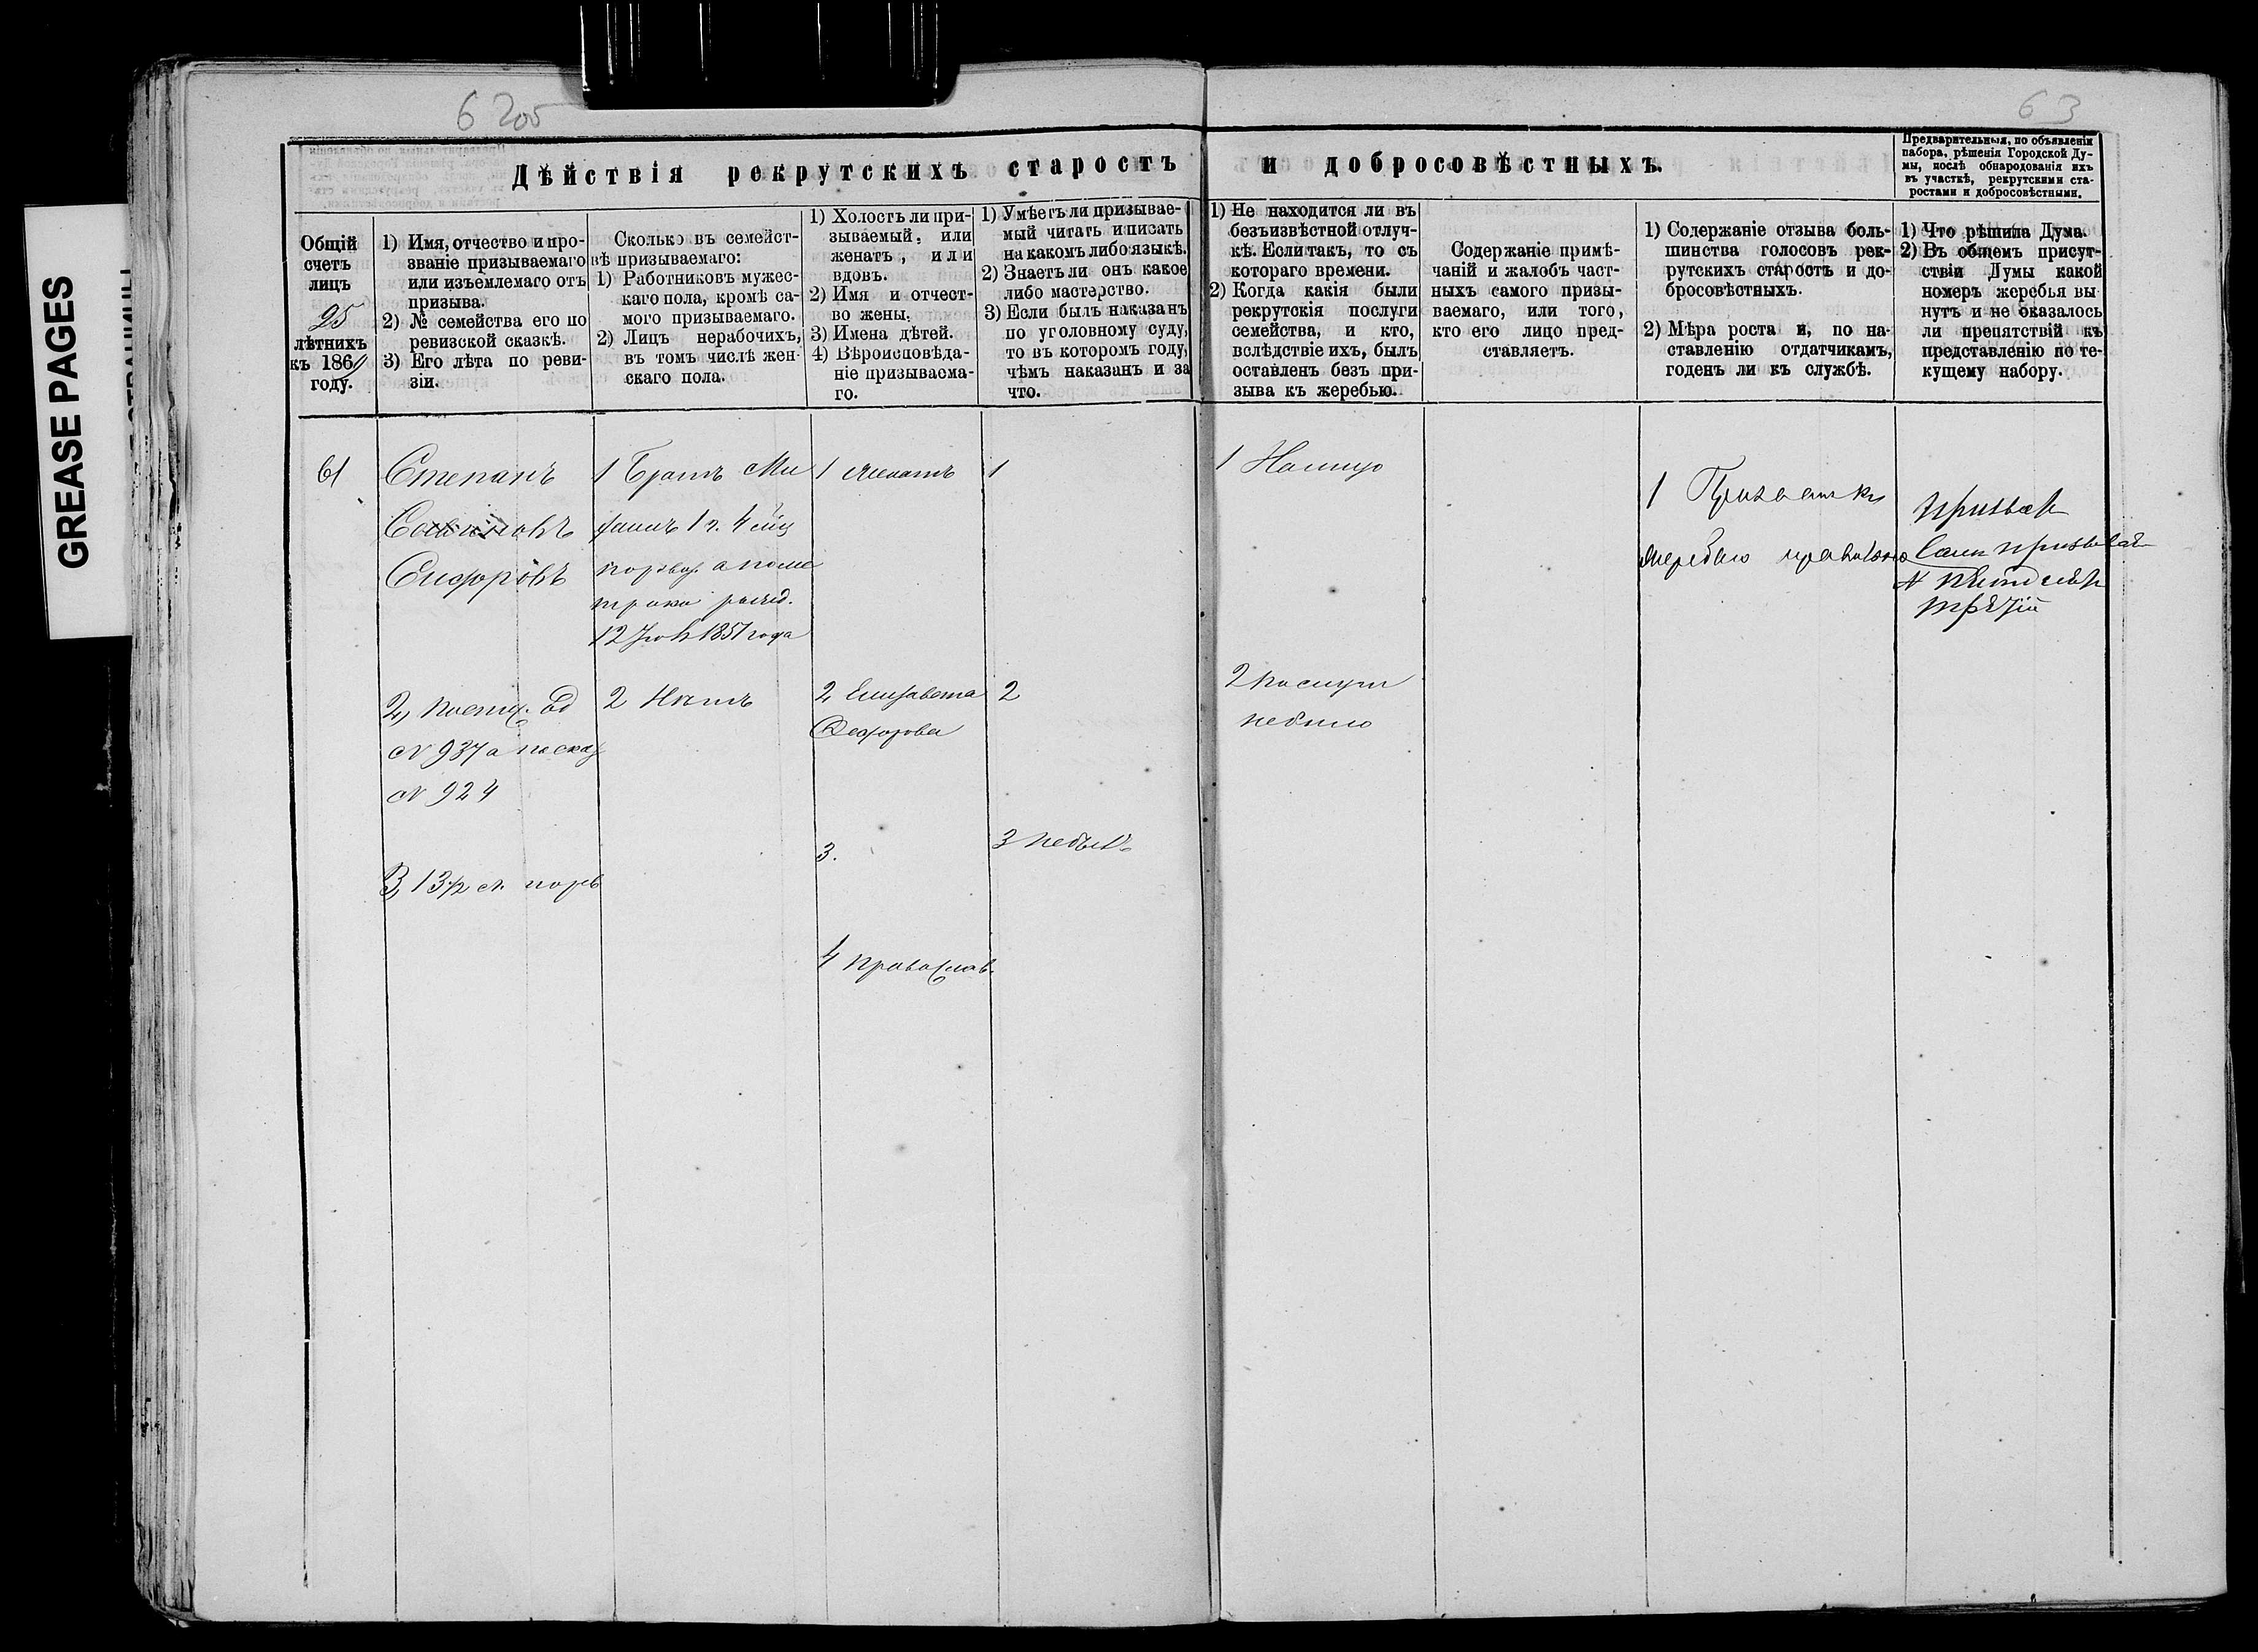 GREASE PAGES
6 205
63
Дѣйствія рекрутскихъ старостъ и добросовѣстныхъ.
Предварительныя, по объявленіи
набора, рѣшенія Городской Ду-
мы, послѣ обнародованія ихъ
въ участкѣ, рекрутскими ста-
ростами и добросовѣстными.
Общій
счетъ
лицъ
25
лѣтнихъ
къ 186
году.
1) Имя, отчество и про-
званіе призываемаго
или изъемлемаго отъ
призыва.
2) № семейства его по
ревизской сказкѣ.
3) Его лѣта по реви-
зіи.
Сколько въ семейст-
вѣ призываемаго:
1) Работниковъ мужес-
каго пола, кромѣ са-
мого призываемаго.
2) Лицъ нерабочихъ,
въ томъ числѣ жен-
скаго пола.
1) Холостъ ли при-
зываемый, или
женатъ, или
вдовъ.
2) Имя и отчест-
во жены.
3) Имена дѣтей.
4) Вѣроисповѣда-
ніе призываема-
го.
1) Умѣетъ ли призывае-
мый читать и писать
на какомъ либо языкѣ.
2) Знаетъ ли онъ какое
либо мастерство.
3) Если былъ наказанъ
по уголовному суду,
то въ которомъ году,
чѣмъ наказанъ и за
что.
1) Не находится ли въ
безъизвѣстной отлуч-
кѣ. Если такъ, то съ
котораго времени.
2) Когда какія были
рекрутскія послуги
семейства, и кто,
вслѣдствіе ихъ, былъ
оставленъ безъ при-
зыва къ жеребью.
Содержаніе примѣ-
чаній и жалобъ част-
ныхъ самого призы-
ваемаго, или того,
кто его лицо пред-
ставляетъ.
1) Содержаніе отзыва боль-
шинства голосовъ рек-
рутскихъ старостъ и до-
бросовѣстныхъ.
2) Мѣра роста и, по на-
ставленію отдатчикамъ,
годенъ ли къ службѣ.
1) Что рѣшила Дума.
2) Въ общемъ присут-
ствіи Думы какой
номеръ жеребья вы
нутъ и не оказалось
ли препятствій къ
представленію по те-
кущему набору.
61
Степанъ
Сидоровъ
1 Братъ Ми
1 г. 4 мѣц
по ревиз. а по ме
трике рожд.
12 1857 года
1 женатъ
1
1 Налицо
1 Призвать къ
жеребью
2)
N 937 а по сказ
N 924
2 Нѣтъ
2, Елизавета
Федорова
2
2 послуги
небыло
3.
3 небылъ
3, 13½ л. по рев
4 православ.